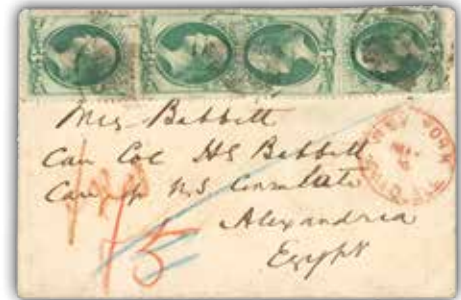 Mrs Babbitt
Care Col HS Babbitt
Care of U.S Consulate
Alexandria
Egypt
NEW YORK
15